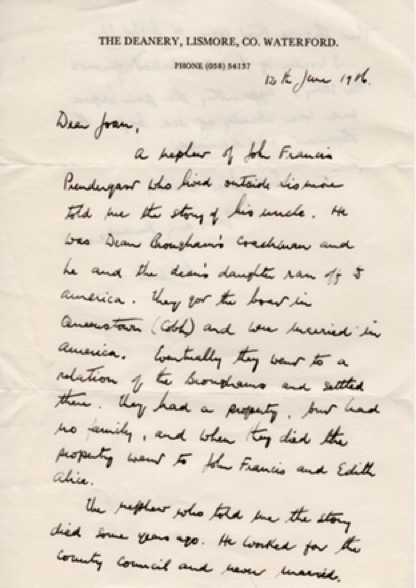 THE DEANERY, LISMORE, CO. WATERFORD.
PHONE (058) 54137
12th June 1986.
Dear Joan,
A nephew of John Francis
Prendergast who lived outside Lismore
told me the story of his uncle. He
was Dean Brougham's coachman and
he and the dean's daughter ran off to
America. They got the boat in
Queenstown (Cobh) and were married in
America. Eventually they went to a
relation of the Broughams and settled
there. They had a property, but had
no family, and when they died the
property went to John Francis and Edith
Alice.
The nephew who told me the story
died some years ago. He worked for the
County Council and never married.